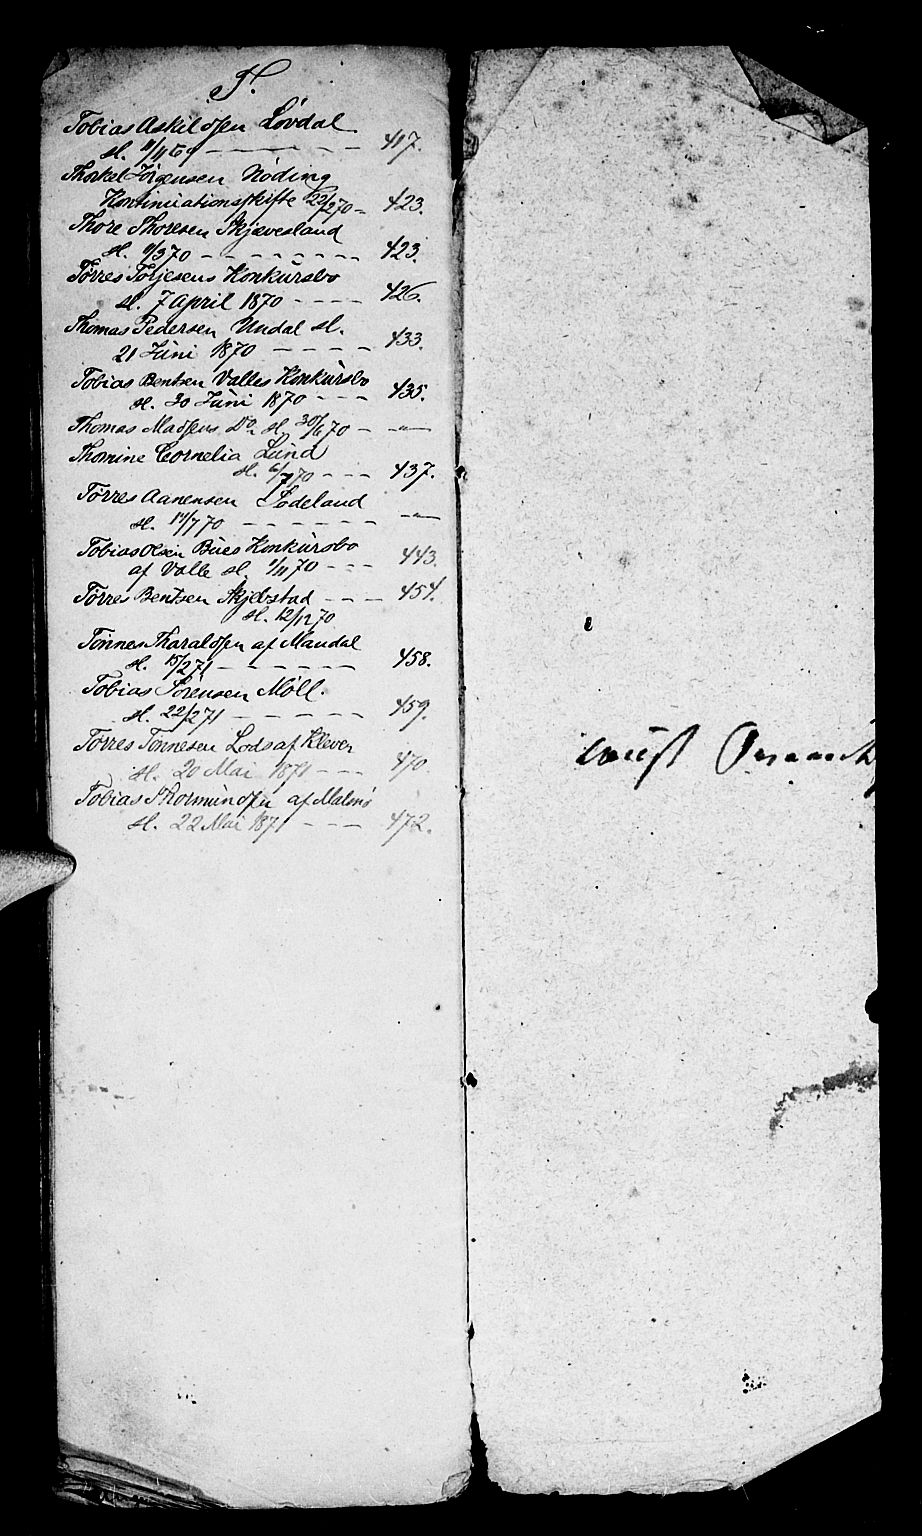 T.
Tobias Askildsen Lövdal
sl. 11/11 69 — 417.
Thorkel Jörgensen Nöding
Kontinuationsskifte 22/2 70 - 423.
Thore Thoresen Skjævesland
sl. 11/3 70 — 423.
Törres Torjesens Konkursbo
sl. 7 April 1870 — 426.
Thomas Pedersen Undal sl.
21 Juni 1870 — 433.
Tobias Bentsen Valles Konkursbo
sl. 30 Juni 1870 — 435.
Thomas Madsens Do sl. 30/6 70 — — " —
Thomine Cornelia Lund
sl. 6/7 70 — 437.
Törres Aanensen Lodeland
sl. 14/7 70 — — " —
Tobias Olsen Bues Konkursbo
af Valle sl. 1/11 70 — 443.
Törres Bentsen Skjebstad — 454.
sl. 12/12 70
Tönnes Tharaldsen af Mandal
sl. 15/2 71 — 458.
Tobias Sörensen Möll.
sl. 22/2 71 — 459.
Törres Tönnesen Lods af Kleven
sl. 20 Mai 1871 — 470.
Tobias Thormundsen af Malmö
sl. 22 Mai 1871 — 472.